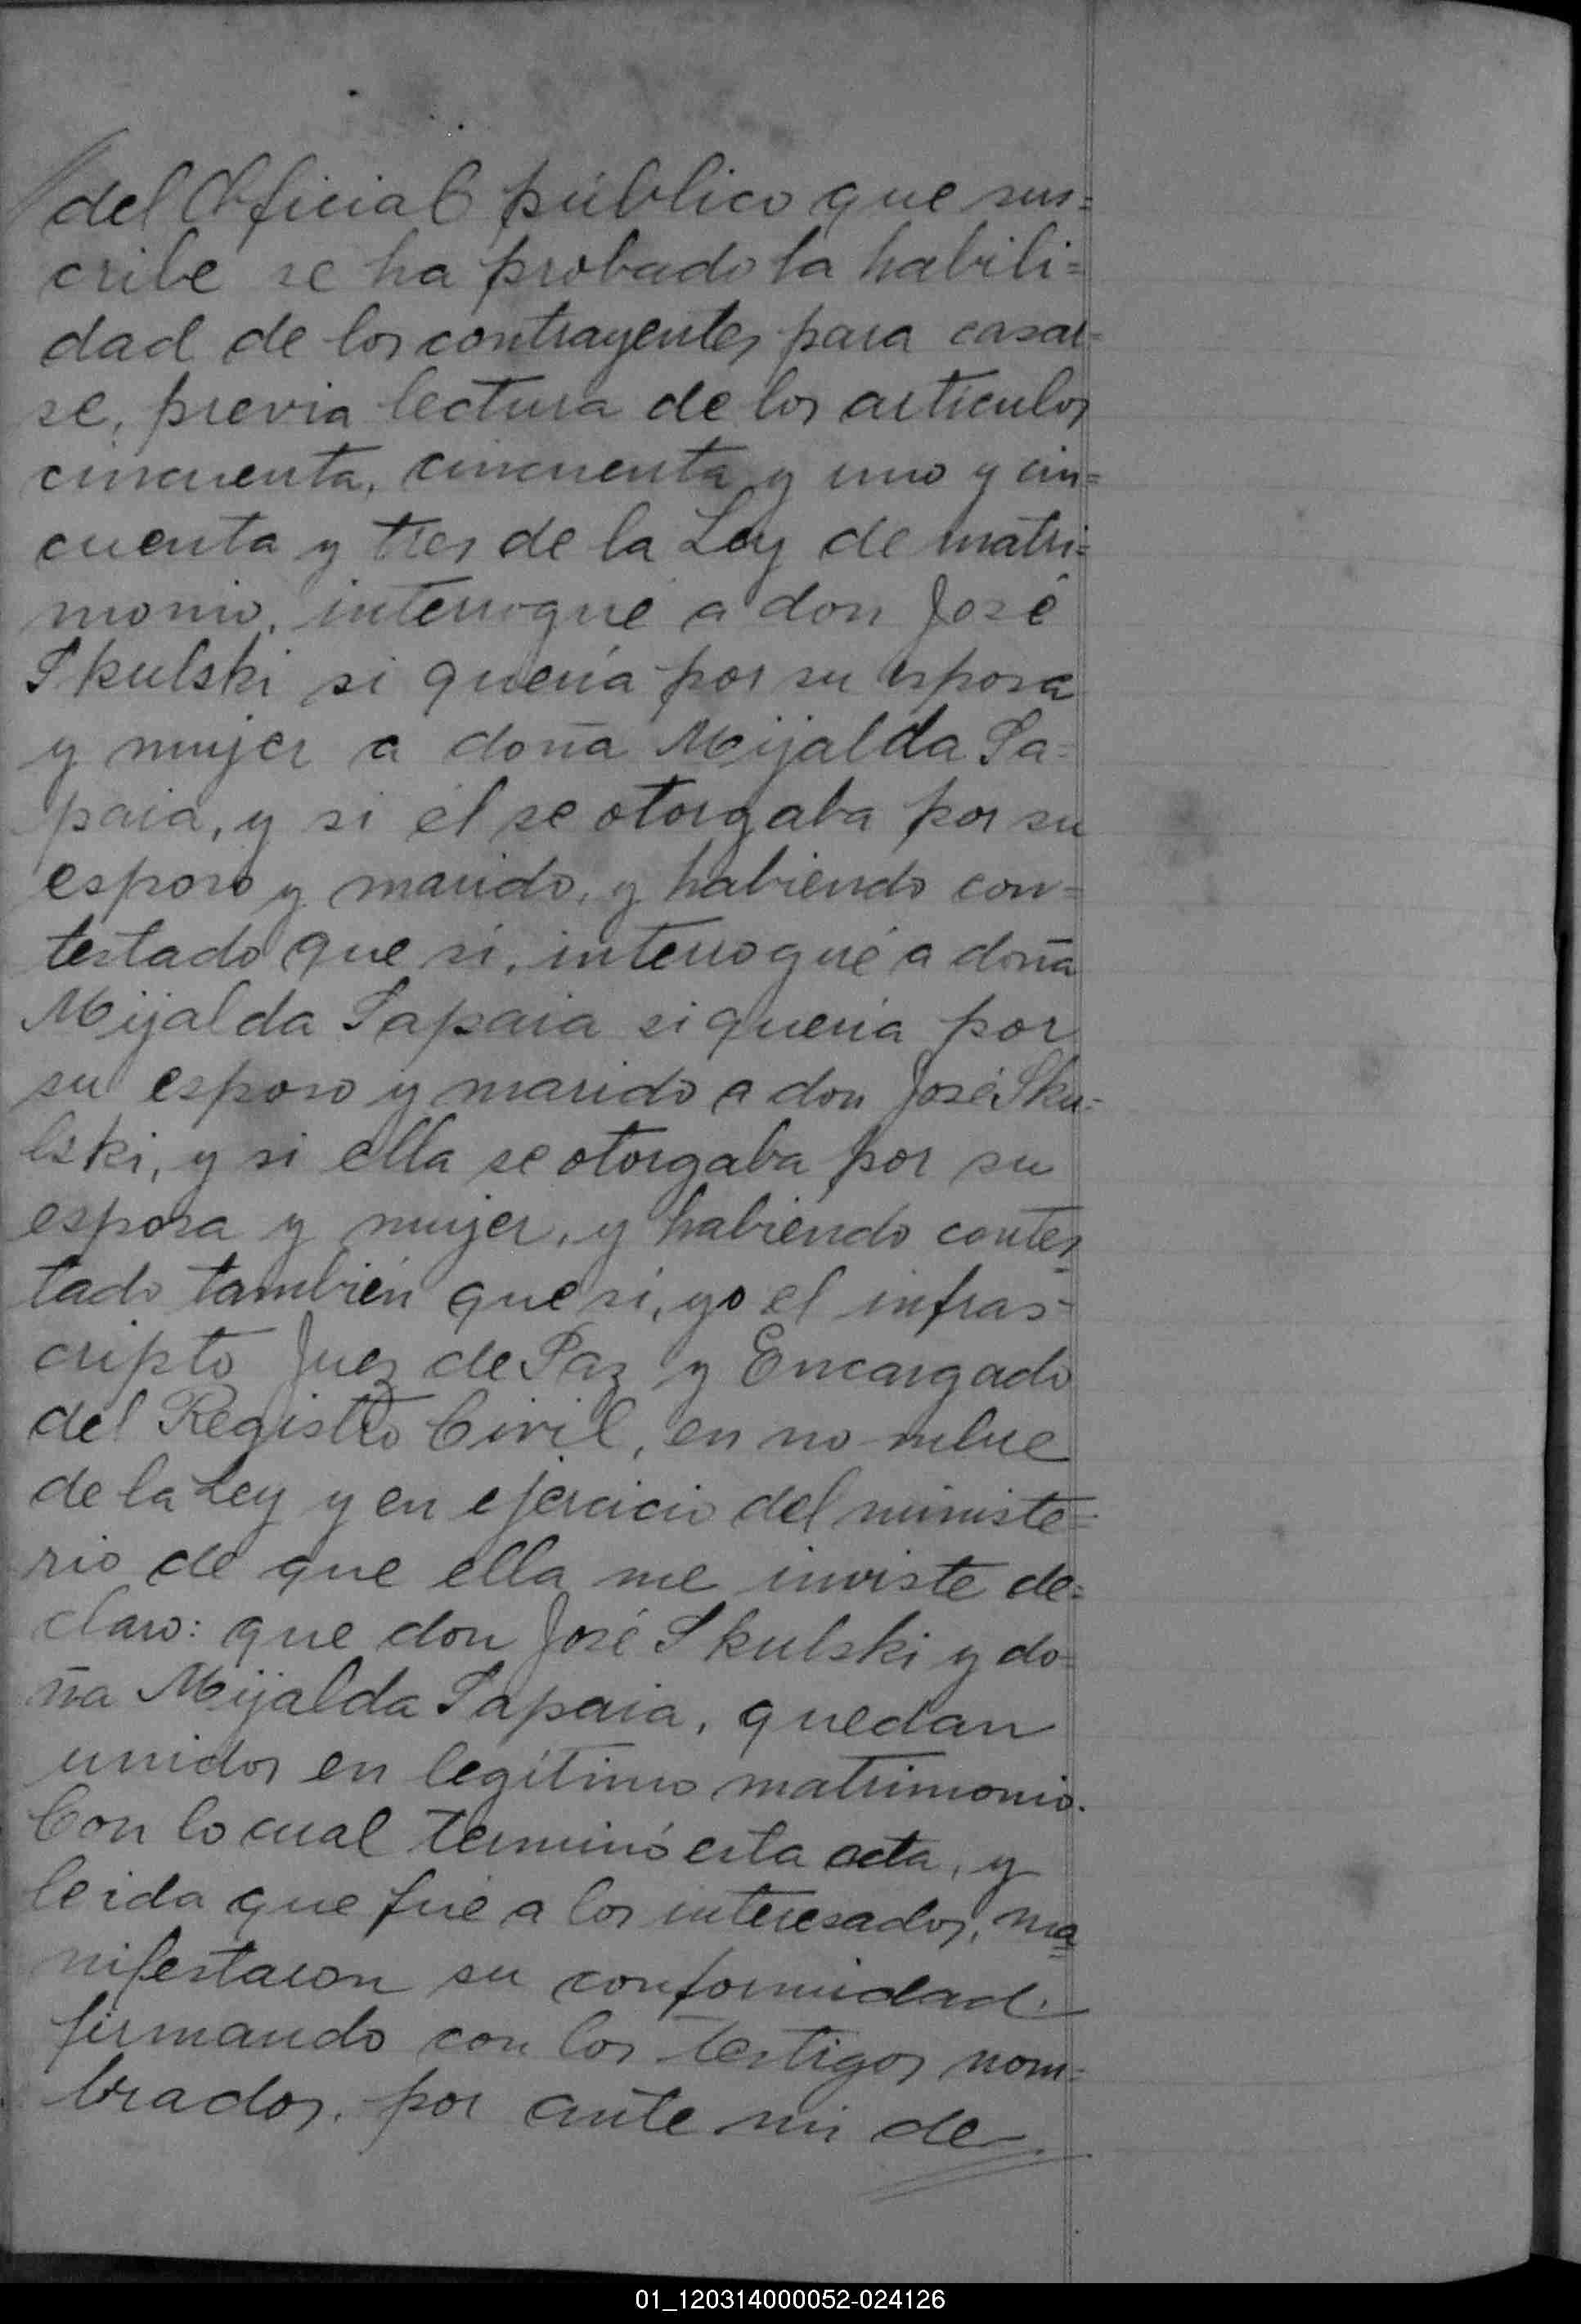 del Oficial público que sus=
cribe se ha probado la habili=
dad de los contrayentes para casar=
se, previa lectura de los artículos
cincuenta, cincuenta y uno y cin=
cuenta y tres de la Ley de matri=
monio, interrogué a don José
Skulski si quería por su esposa
y mujer a doña Mijalda Sa=
paia, y si él se otorgaba por su
esposo y marido, y habiendo con=
testado que sí, interrogué a doña
Mijalda Sapaia si quería por
su esposo y marido a don José Sku=
lski, y si ella se otorgaba por su
esposa y mujer, y habiendo contes
tado también que sí, yo el infras=
cripto Juez de Paz y Encargado
del Registro Civil, en no mbre
de la Ley y en ejercicio del ministe=
rio de que ella me inviste de=
claro: que don José Skulski y do=
ña Mijalda Sapaia, quedan
unidos en legítimo matrimonio.
Con lo cual terminó esta acta, y
leida que fué a los interesados, ma
nifestaron su conformidad
firmando con los testigos nom=
brados, por ante mi de
01_120314000052-024126